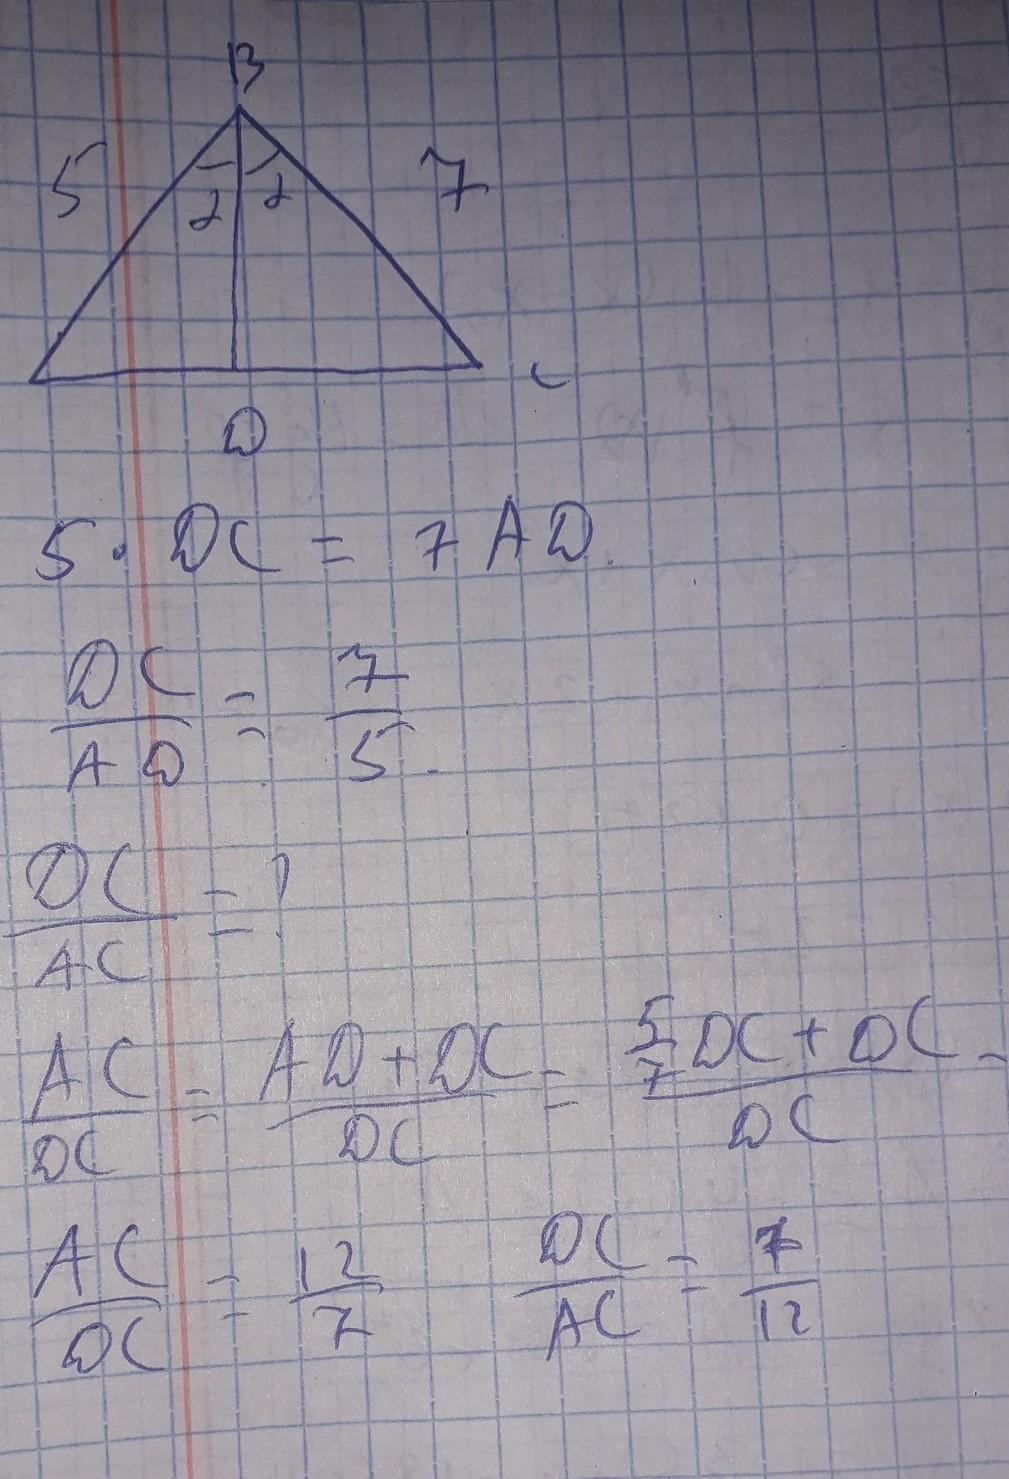 B
5 7
α α
C
D
5 · DC = 7 AD.
DC/AD = 7/5.
DC/AC = ?
AC/DC = AD+DC/DC = 5/7 DC + DC/DC =
AC/DC = 12/7 DC/AC = 7/12